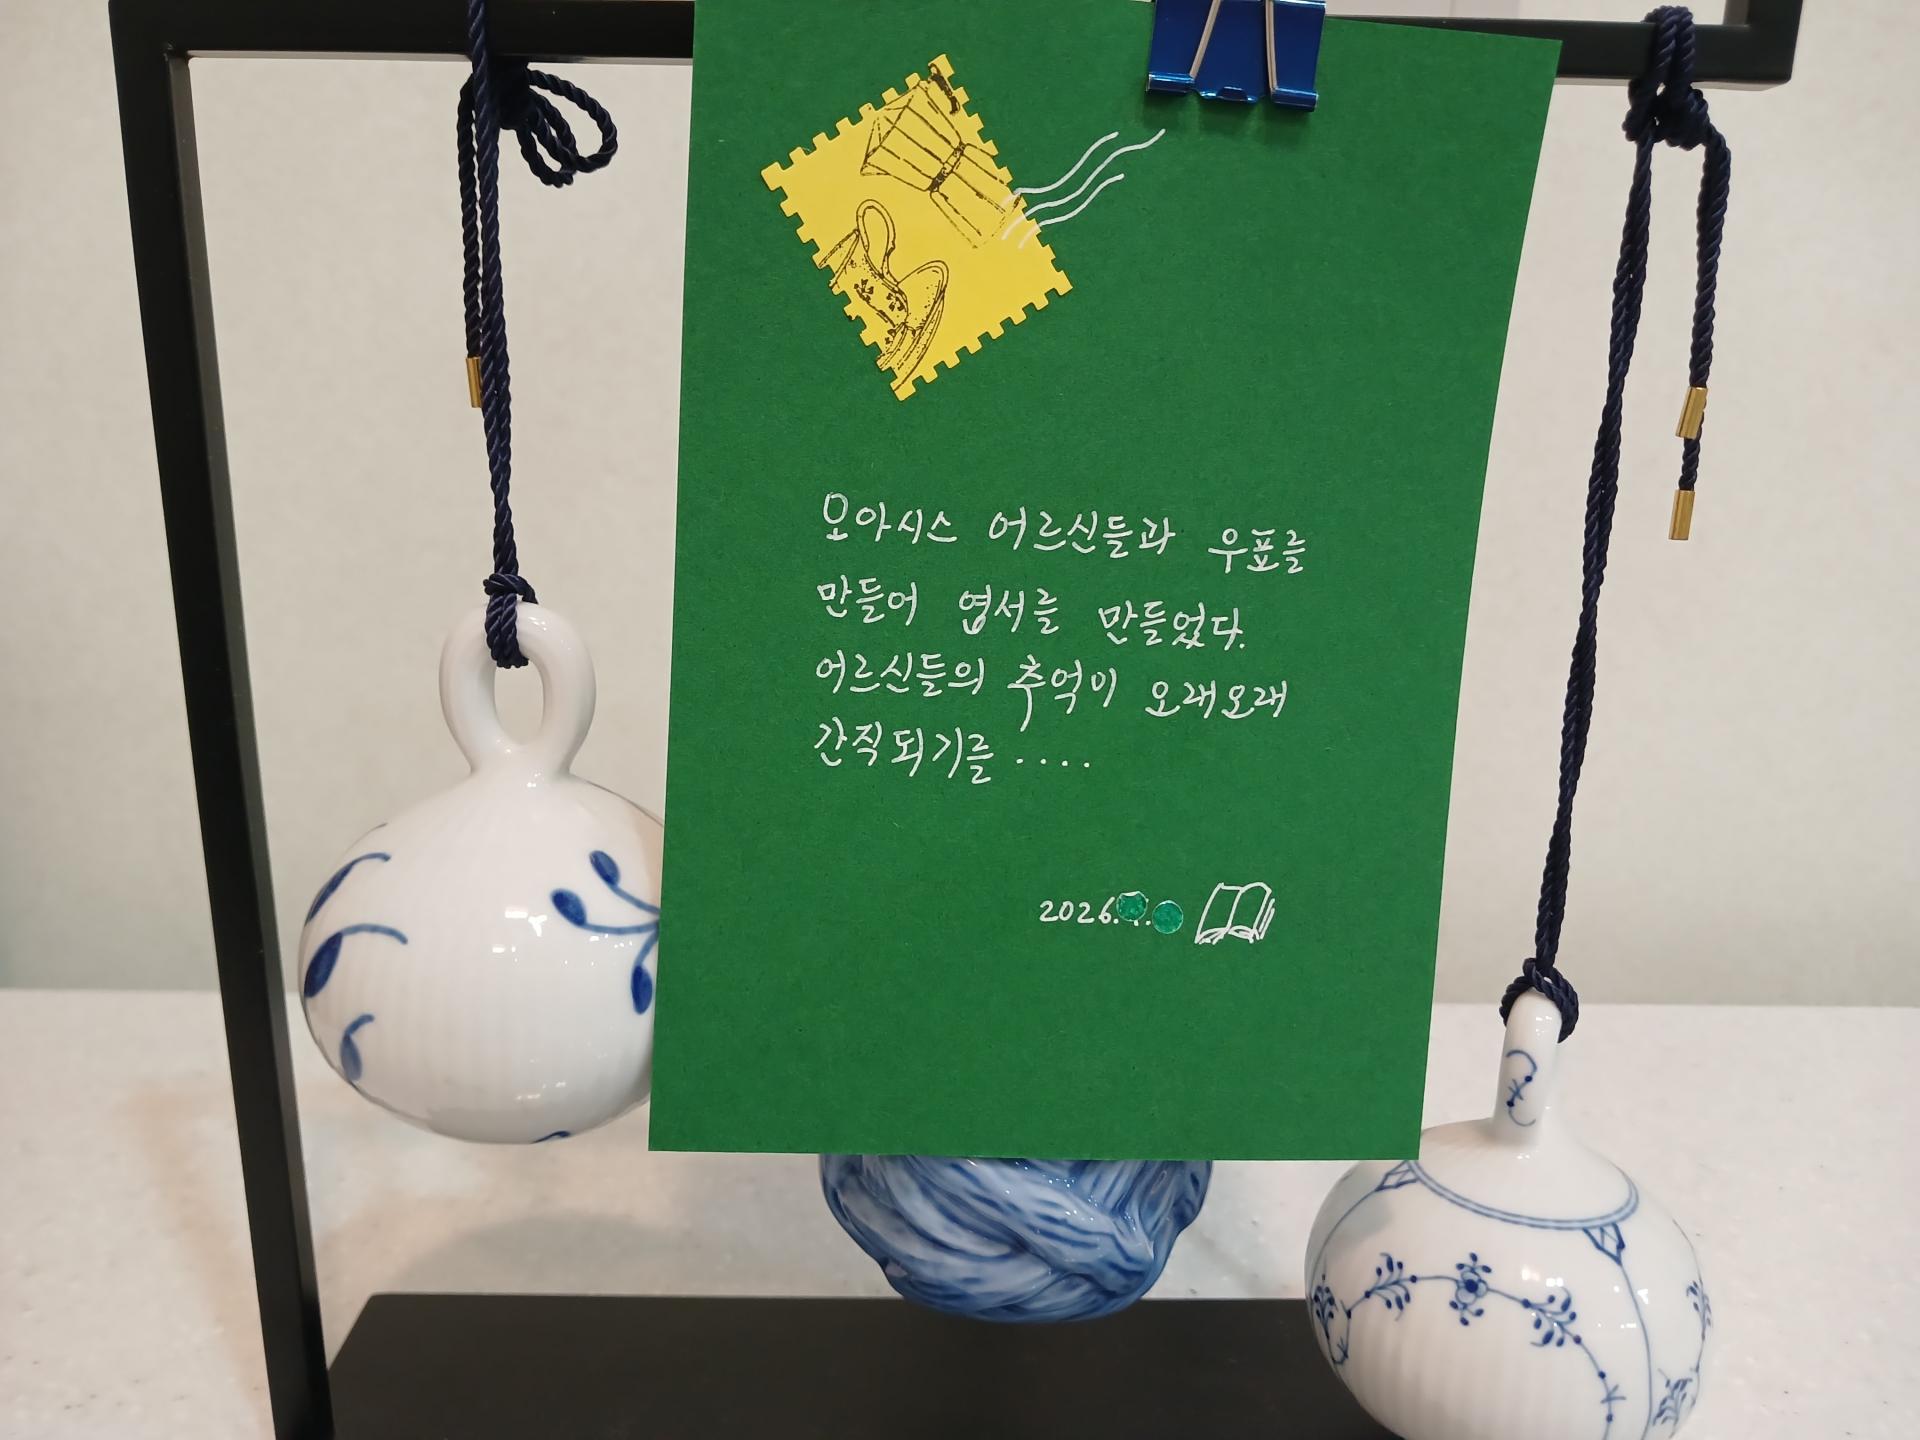 오아시스 어르신들과 우표를
만들어 엽서를 만들었다.
어르신들의 추억이 오래오래
간직되기를 ....
2026.